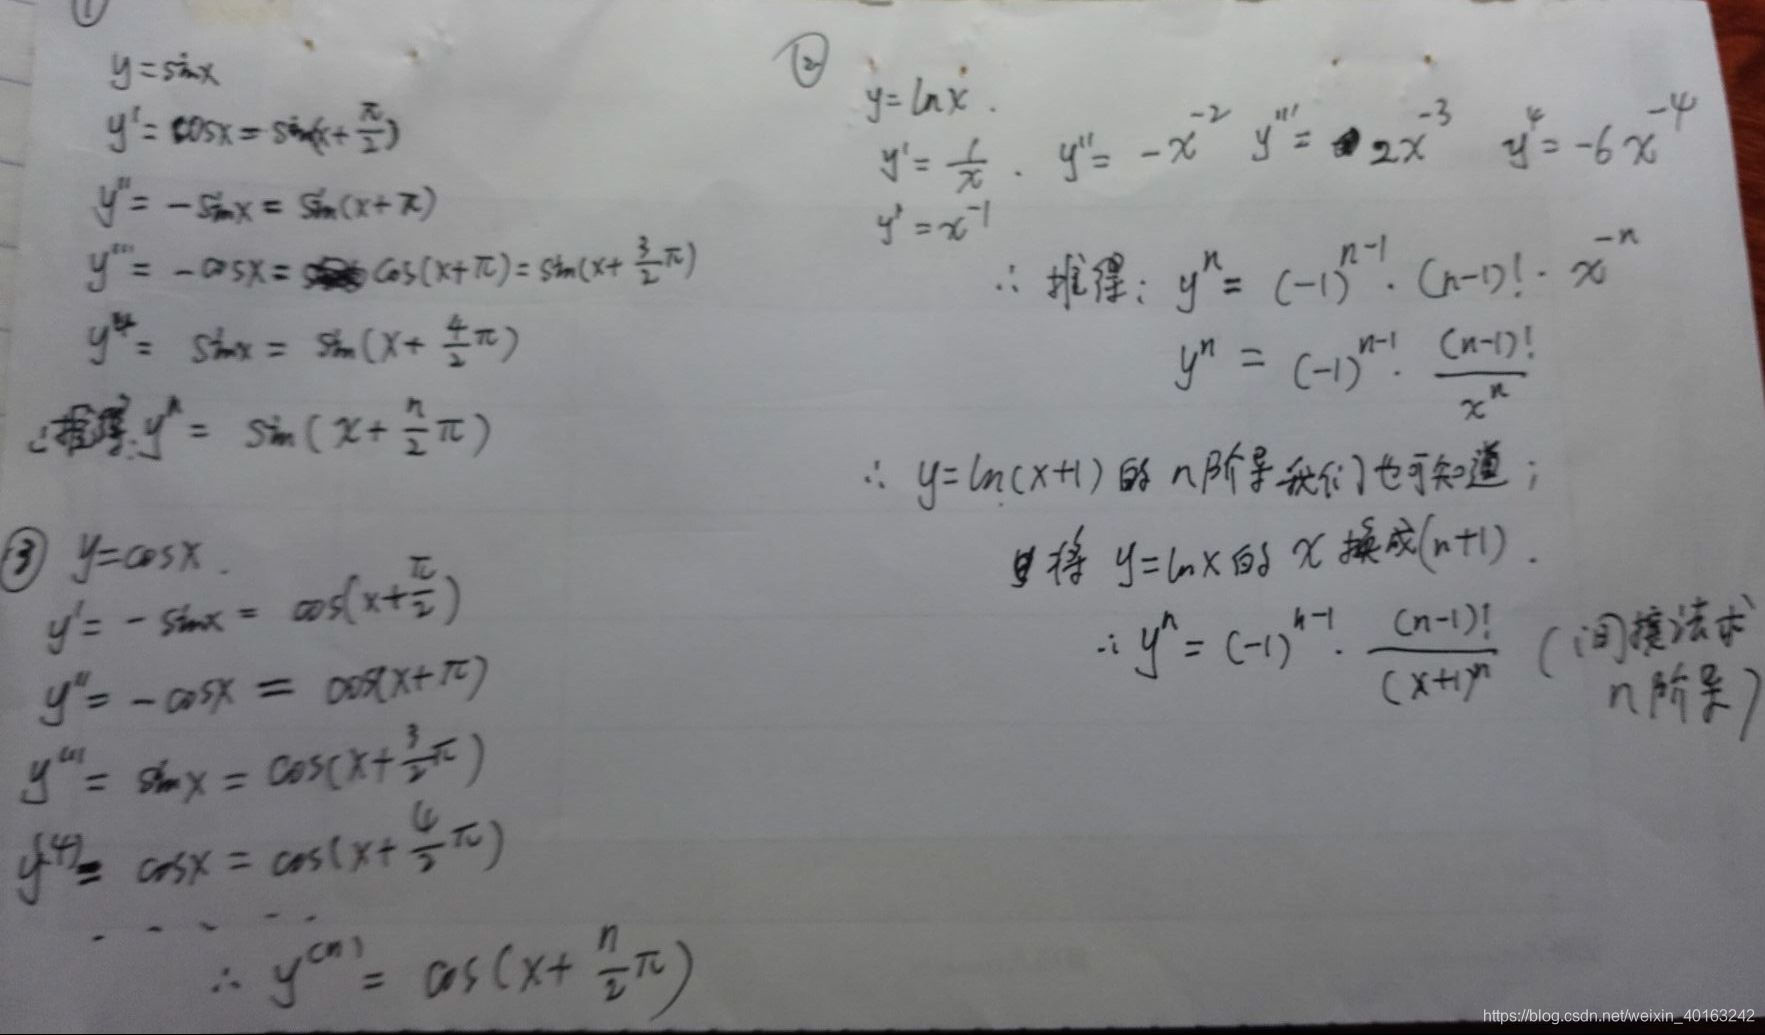 ①
y = sinx
y' = cosx = sin(x + π/2)
y'' = -sinx = sin(x + π)
y''' = -cosx = cos(x + π) = sin(x + 3/2 π)
y⁴ = sinx = sin(x + 4/2 π)
∴推得: yⁿ = sin(x + n/2 π)
②
y = lnx.
y' = 1/x . y'' = -x⁻² y''' = 2x⁻³ y⁴ = -6x⁻⁴
y' = x⁻¹
∴ 推得: yⁿ = (-1)ⁿ⁻¹ · (n-1)! · x⁻ⁿ
yⁿ = (-1)ⁿ⁻¹ · (n-1)!/xⁿ
∴ y = ln(x+1) 的 n阶导我们也可知道;
将 y = lnx 的 x 换成(n+1).
∴ yⁿ = (-1)ⁿ⁻¹ · (n-1)!/(x+1)ⁿ (间接法求
n阶导)
③ y = cosx.
y' = -sinx = cos(x + π/2)
y'' = -cosx = cos(x + π)
y''' = sinx = cos(x + 3/2 π)
y⁽⁴⁾ = cosx = cos(x + 4/2 π)
. . . . .
∴ y⁽ⁿ⁾ = cos(x + n/2 π)
https://blog.csdn.net/weixin_40163242